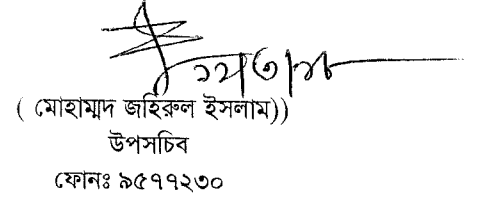 ( মোহাম্মদ জহিরুল ইসলাম))
উপসচিব
ফোনঃ ৯৫৭৭২৩০